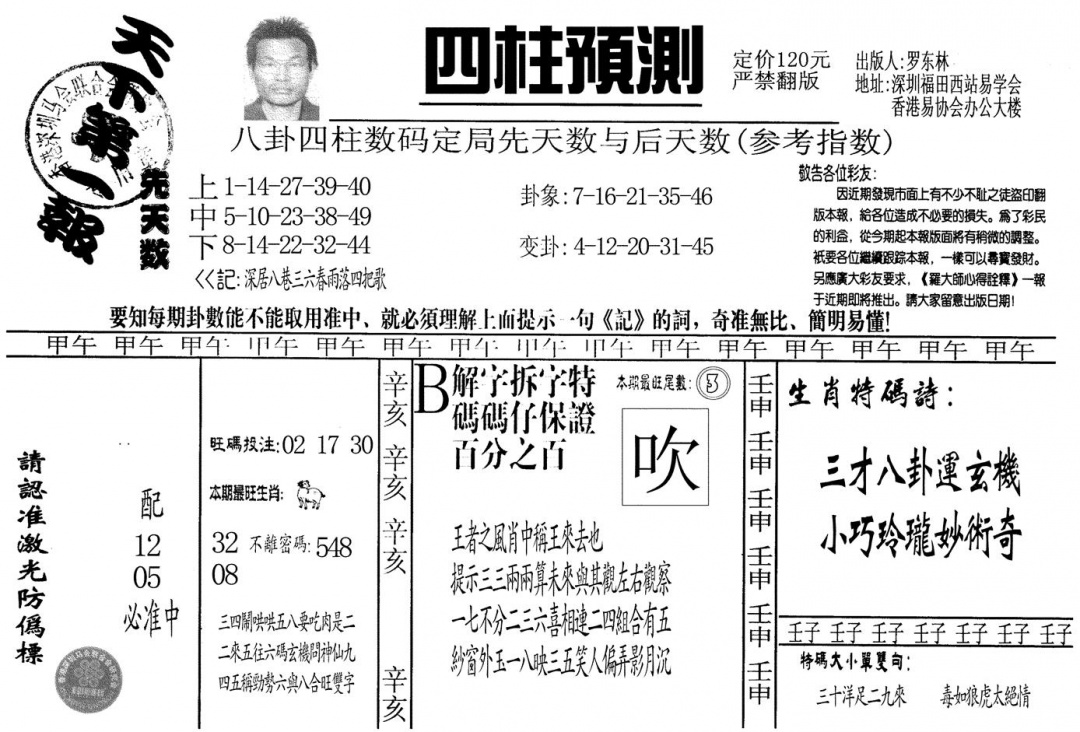 天下第一報
四柱預測
定价120元
严禁翻版
出版人:罗东林
地址:深圳福田西站易学会
香港易协会办公大楼
八卦四柱数码定局先天数与后天数(参考指数)
先天数
上 1-14-27-39-40
中 5-10-23-38-49
下 8-14-22-32-44
<<記:深居八巷三六春雨落四把歌
卦象:7-16-21-35-46
变卦:4-12-20-31-45
敬告各位彩友:
因近期發現市面上有不少不耻之徒盗印翻
版本報,給各位造成不必要的損失。爲了彩民
的利益,從今期起本報版面將有稍微的調整。
衹要各位繼續跟踪本報,一樣可以尋寶發財。
另應廣大彩友要求,《羅大師心得詮釋》一報
于近期即將推出。請大家留意出版日期!
要知每期卦數能不能取用准中、就必須理解上面提示一句《記》的詞,奇准無比、簡明易懂!
甲午 甲午 甲午 甲午 甲午 甲午 甲午 甲午 甲午 甲午 甲午 甲午 甲午 甲午 甲午
請認准激光防僞標
配
12
05
必准中
旺碼投注:02 17 30
本期最旺生肖:
32 不離密碼:548
08
三四鬧哄哄五八要吃肉是二
二來五往六碼玄機問神仙九
四五稱勁勢六與八合旺雙字
辛亥
辛亥
辛亥
辛亥
B解字拆字特
碼碼仔保證
百分之百
本期最旺尾數:3
吹
王者之風肖中稱王來去也
提示三三兩兩算未來與其觀左右觀察
一七不分二三六喜相連二四組合有五
紗窗外玉一八映三五笑人偏弄影月沉
壬申
壬申
壬申
壬申
壬申
壬申
生肖特碼詩:
三才八卦運玄機
小巧玲瓏妙術奇
壬子 壬子 壬子 壬子 壬子 壬子 壬子
特碼大小單雙句:
三十洋足二九來 毒如狼虎太絕情